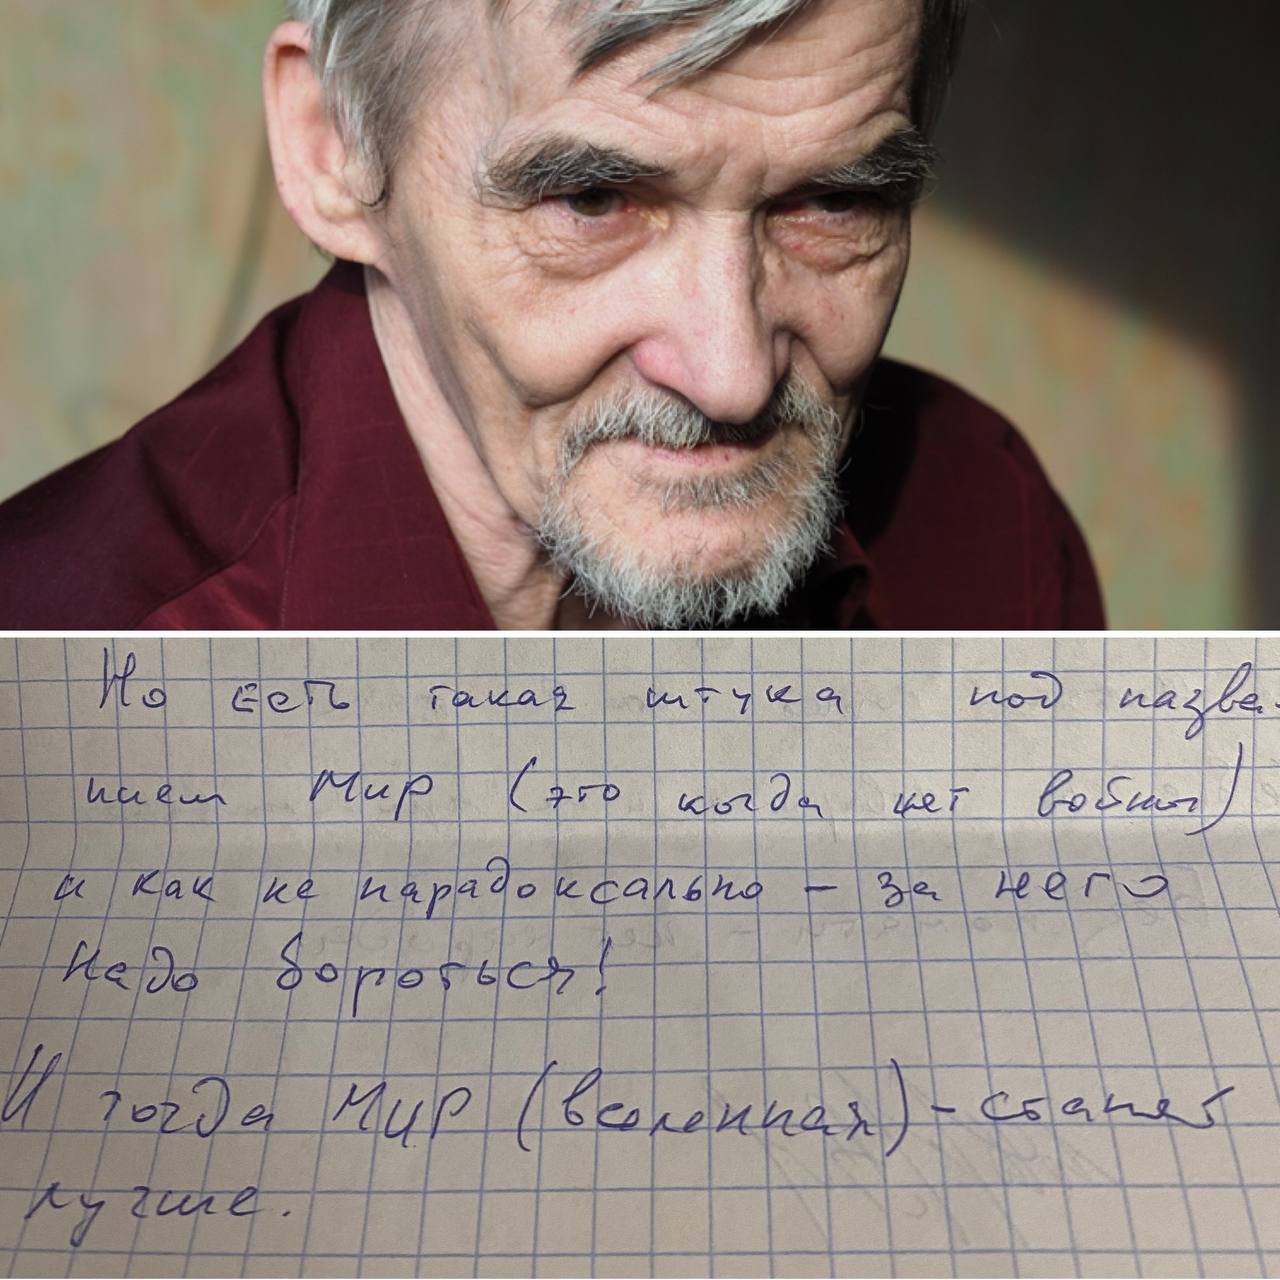 Но есть такая штука под назва-
нием Мир (это когда нет войны)
и как не парадоксально – за него
надо бороться!
И тогда Мир (вселенная) – станет
лучше.